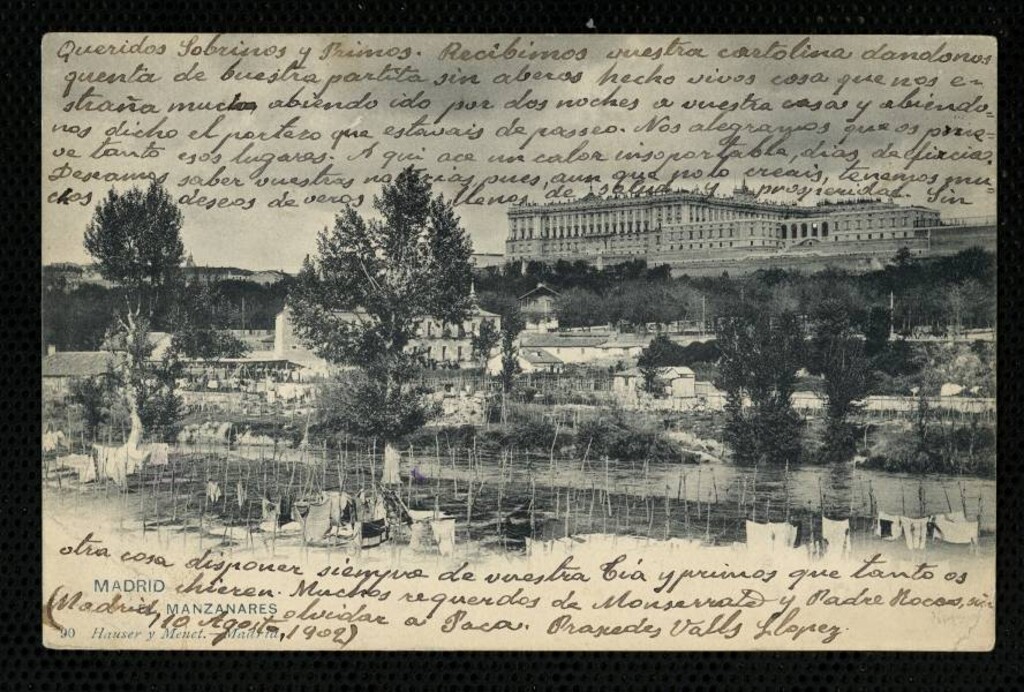 Queridos Sobrinos y Primos. Recibimos vuestra cartolina dandonos
quenta de buestra partita sin aberos hecho vivos cosa que nos e-
straña mucho, abiendo ido por dos noches a vuestra casa y abiendo-
nos dicho el portero que estavais de paseo. Nos alegramos que os prue-
ve tanto esos lugares. A qui ace un calor insoportable, dias de
Deseamos saber vuestras noticias pues, aun que no lo creais, tenemos mu-
chos deseos de veros llenos de salud y prosperidad. Sin
otra cosa disponer siempre de vuestra Tia y primos que tanto os
MADRID
chieren. Muchos requerdos de Monserrate y Padre Rocos, sin
EL MANZANARES
olvidar a Paca. Praxedes Valls Llopez.
(Madrid, 10 Agosto, 1902)
90 Hauser y Menet. - Madrid